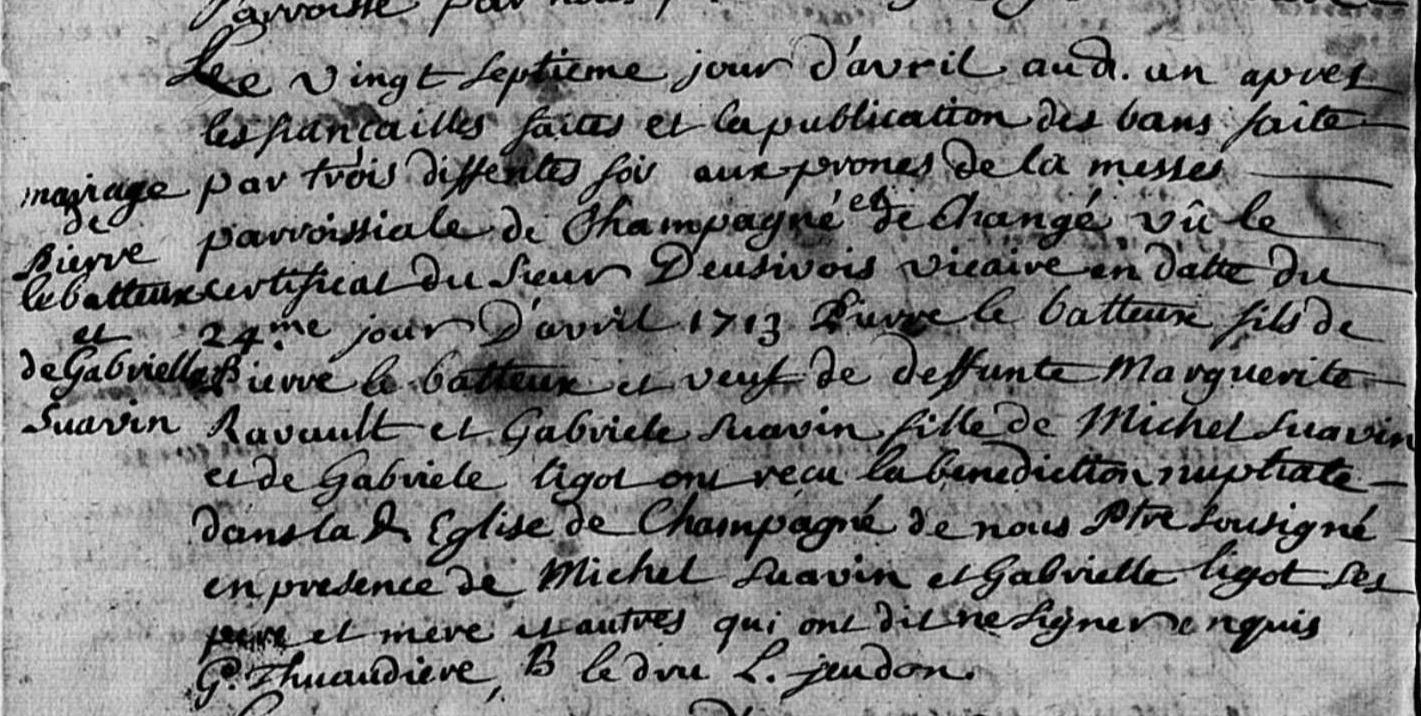 parroisse par nous
Le vingt septieme jour d'avril aud. an apres
les fiançailles faites et la publication des bans faite
par trois diffentes fois aux prones de la messes
parroissiale de Champagné et de Changé vû le
certificat du sieur Deusivois vicaire en datte du
24.me jour D'avril 1713 Pierre le batteux fils de
Pierre le batteux et veuf de deffunte Marguerite
Ravault et Gabriele Suavin fille de Michel Suavin
et de Gabriele ligot ont recu la benediction nuptiale
dans la d. Eglise de Champagné de nous Ptre sousigné
en presence de Michel Suavin et Gabrielle ligot ses
pere et mere et autres qui ont dit ne signer enquis
G. Thuaudiere, B le dru L. jeudon.
mariage
de
Pierre
le batteux
et
de Gabrielle
Suavin